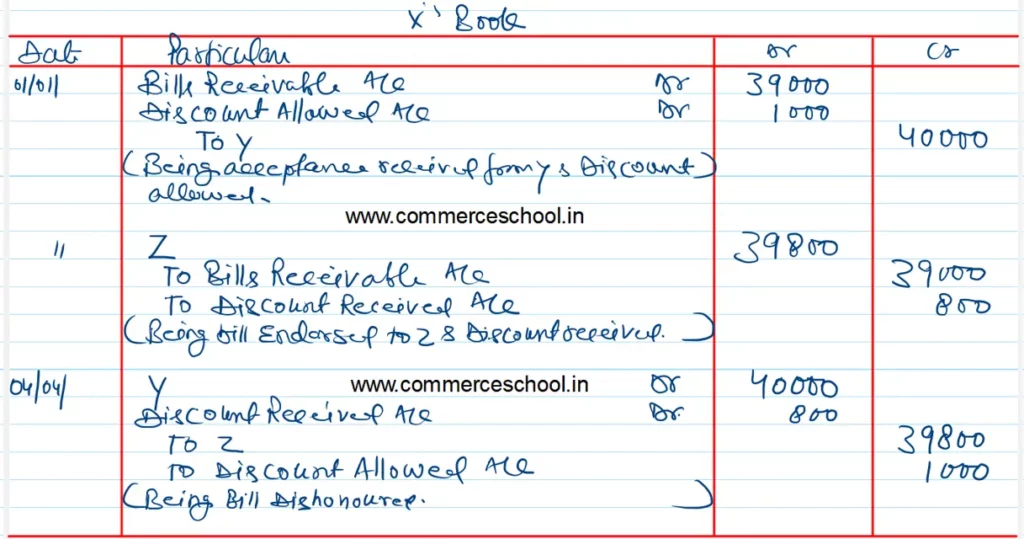 X's Book
Date Particular Dr Cr
01/01/ Bills Receivable A/c Dr 39000
Discount Allowed A/c Dr 1000
To Y 40000
(Being acceptance received from y & Discount)
allowed.
www.commerceschool.in
" Z 39800
To Bills Receivable A/c 39000
To Discount Received A/c 800
(Being bill Endorsed to Z & Discount received.)
04/04/ Y www.commerceschool.in Dr 40000
Discount Received A/c Dr. 800
To Z 39800
To Discount Allowed A/c 1000
(Being Bill Dishonoured.)